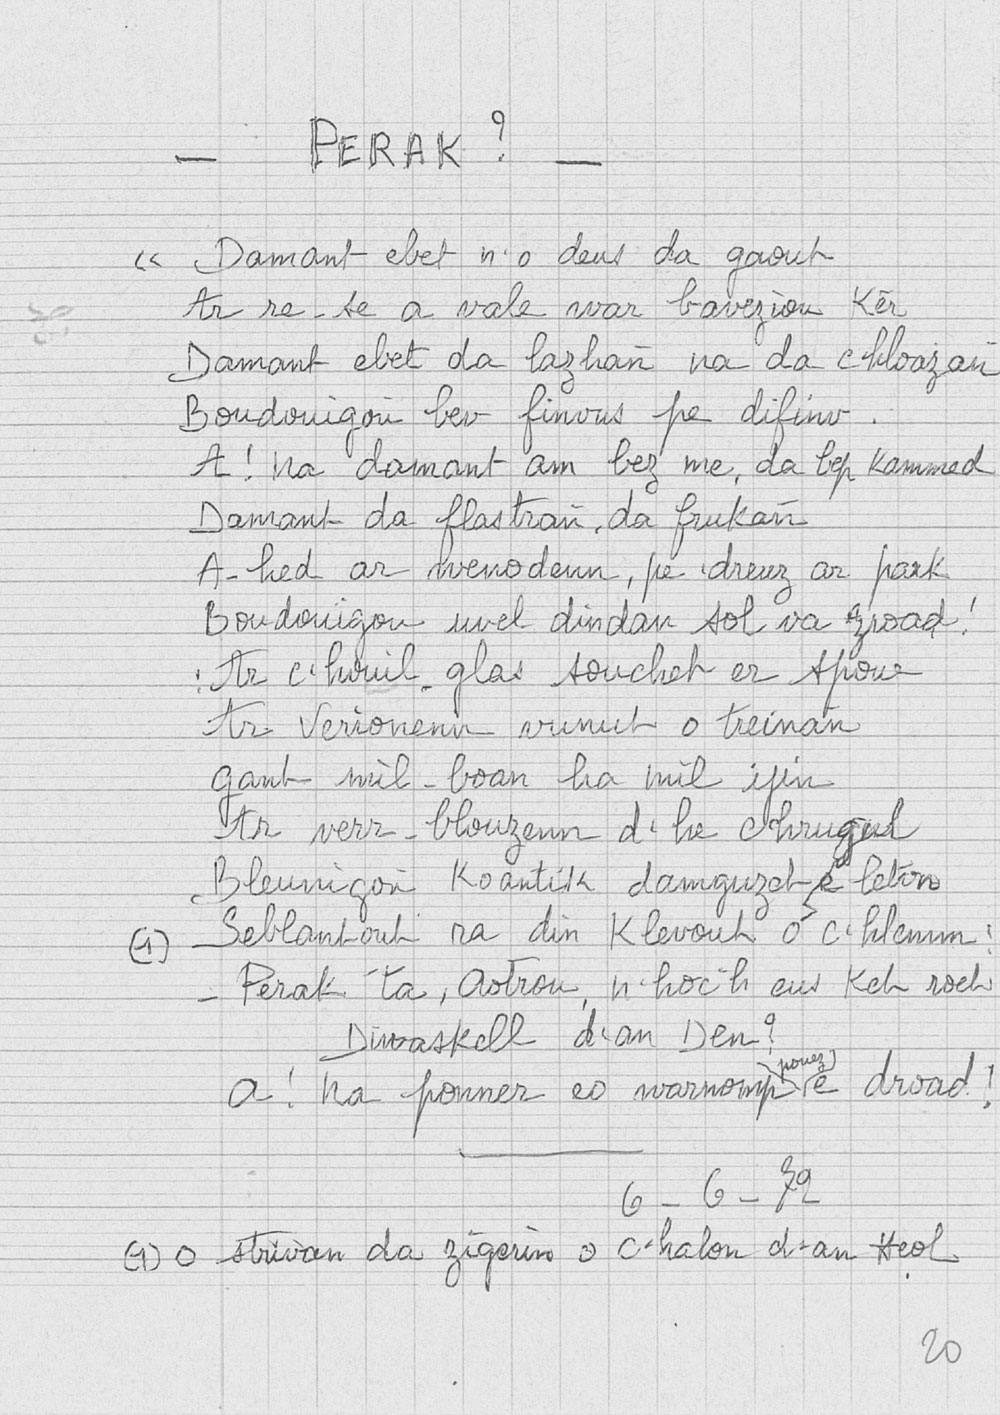 — PERAK ? —
« Damant ebet n'o deus da gaout
Ar re-se a vale war baveziou Kêr
Damant ebet da lazhañ na da c'hloazañ
Boudouigoù bev finvus pe difinv.
A! na damant am bez me, da bep kammed
Damant da flastrañ, da frikañ
A-hed ar wenodenn, pe dreuz ar park
Boudouigou uvel dindan sol va zroad!
: Ar c'hwil-glas souchet er spoue
Ar Verionenn vunut o treinañ
gant mil-boan ha mil ijin
Ar verr-blouzenn d'he c'hrugell
Bleunigoù Koantik damguzet e leton
(1) Seblantout ra din Klevout o c'hlemm:
- Perak 'ta, Aotrou, n'hoc'h eus Ket roet
Diwaskell d'an Den?
A! na ponner eo warnomp pouez e droad!
6 - 6 - 79
(1) O strivañ da zigeriñ o c'halon d'an Heol
20